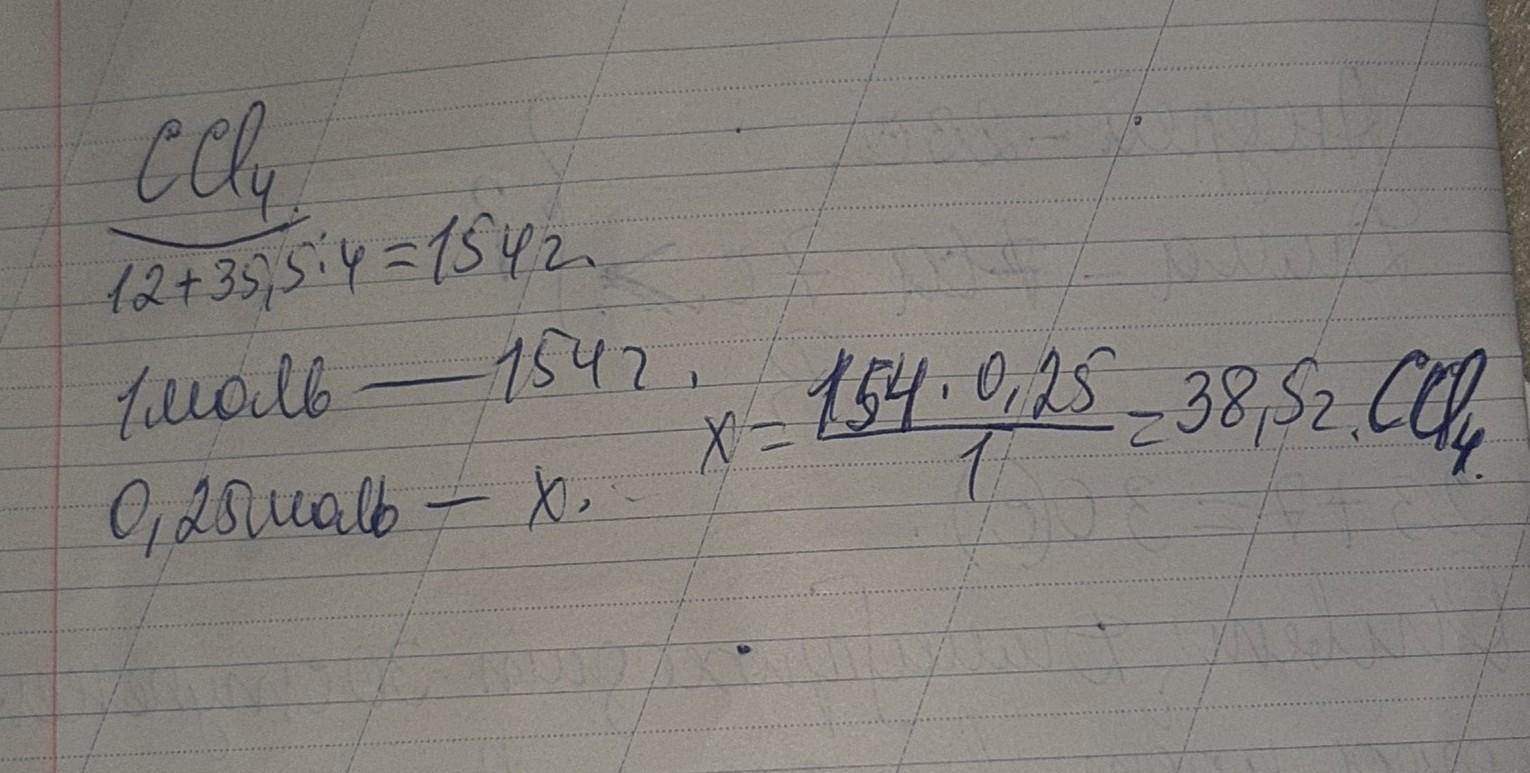 CCl₄
12+35,5·4=154г.
1моль — 154г.
0,25моль — x.
x = 154·0,25/1 = 38,5г. CCl₄.